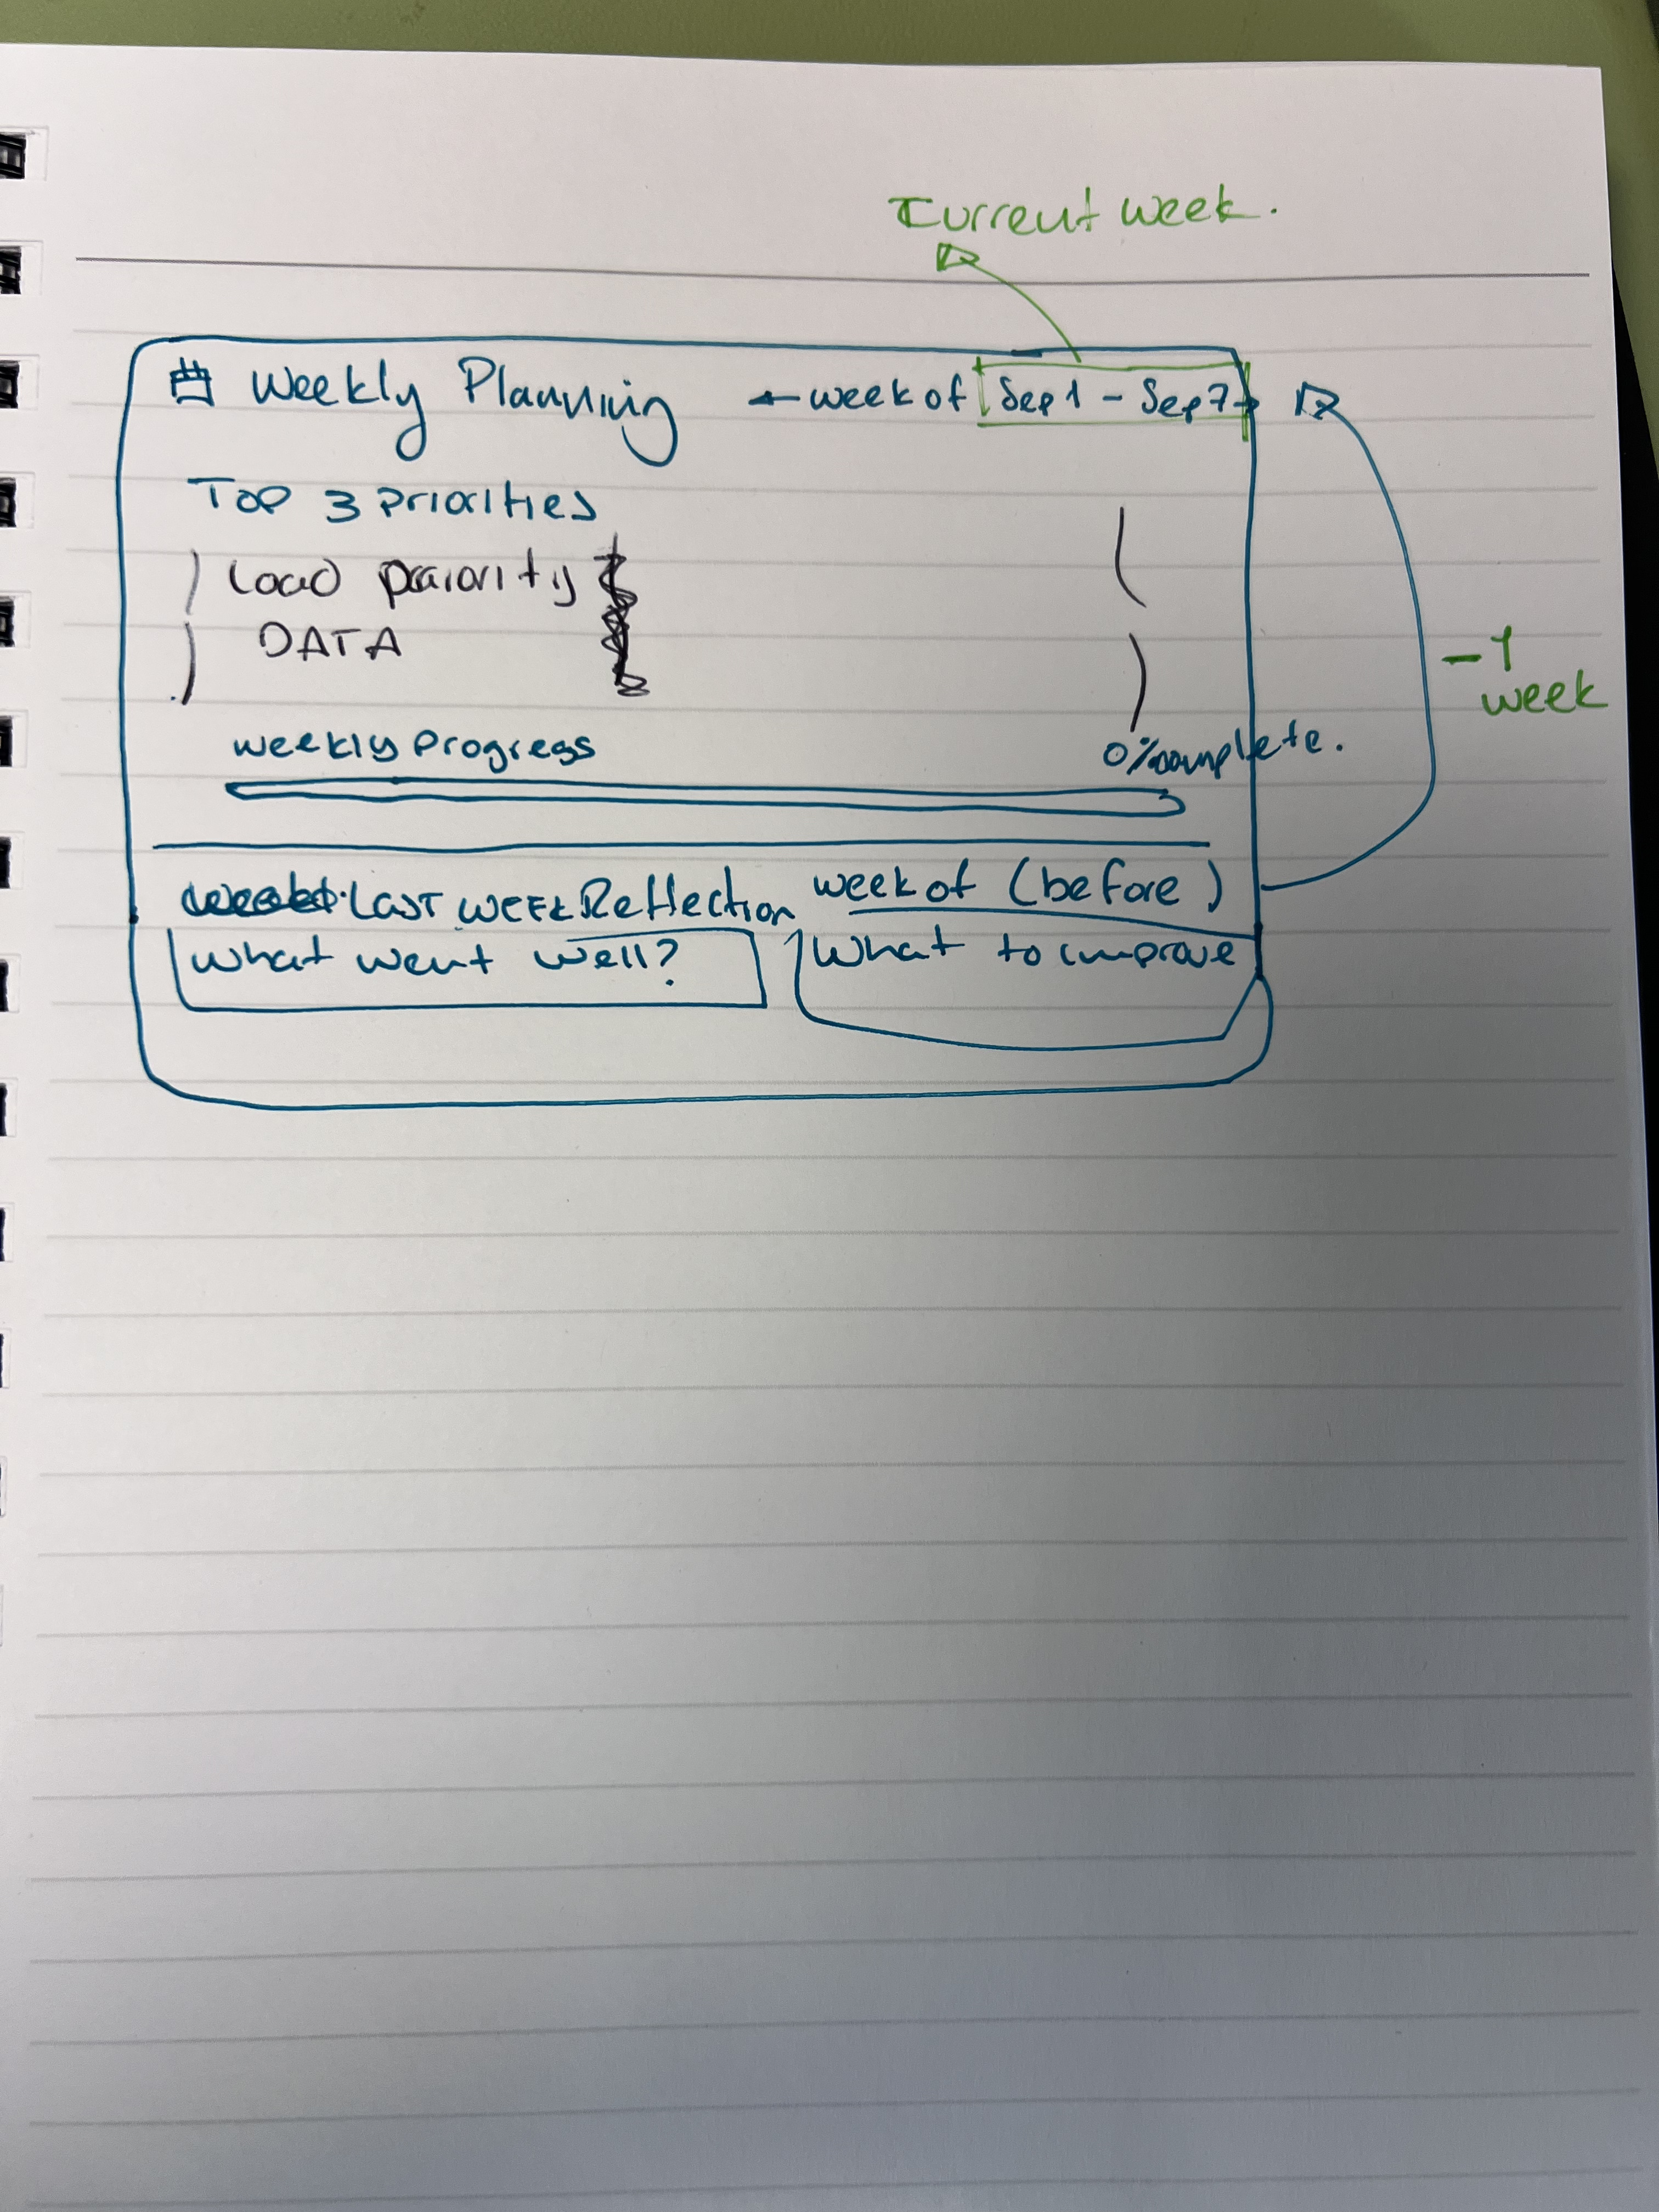 Current week.
Weekly Planning ← week of Sep 1 - Sep 7 →
Top 3 priorities
Load priority
DATA
- 1
week
weekly progress 0% complete.
LAST WEEK Reflection week of (before)
What went well? What to improve